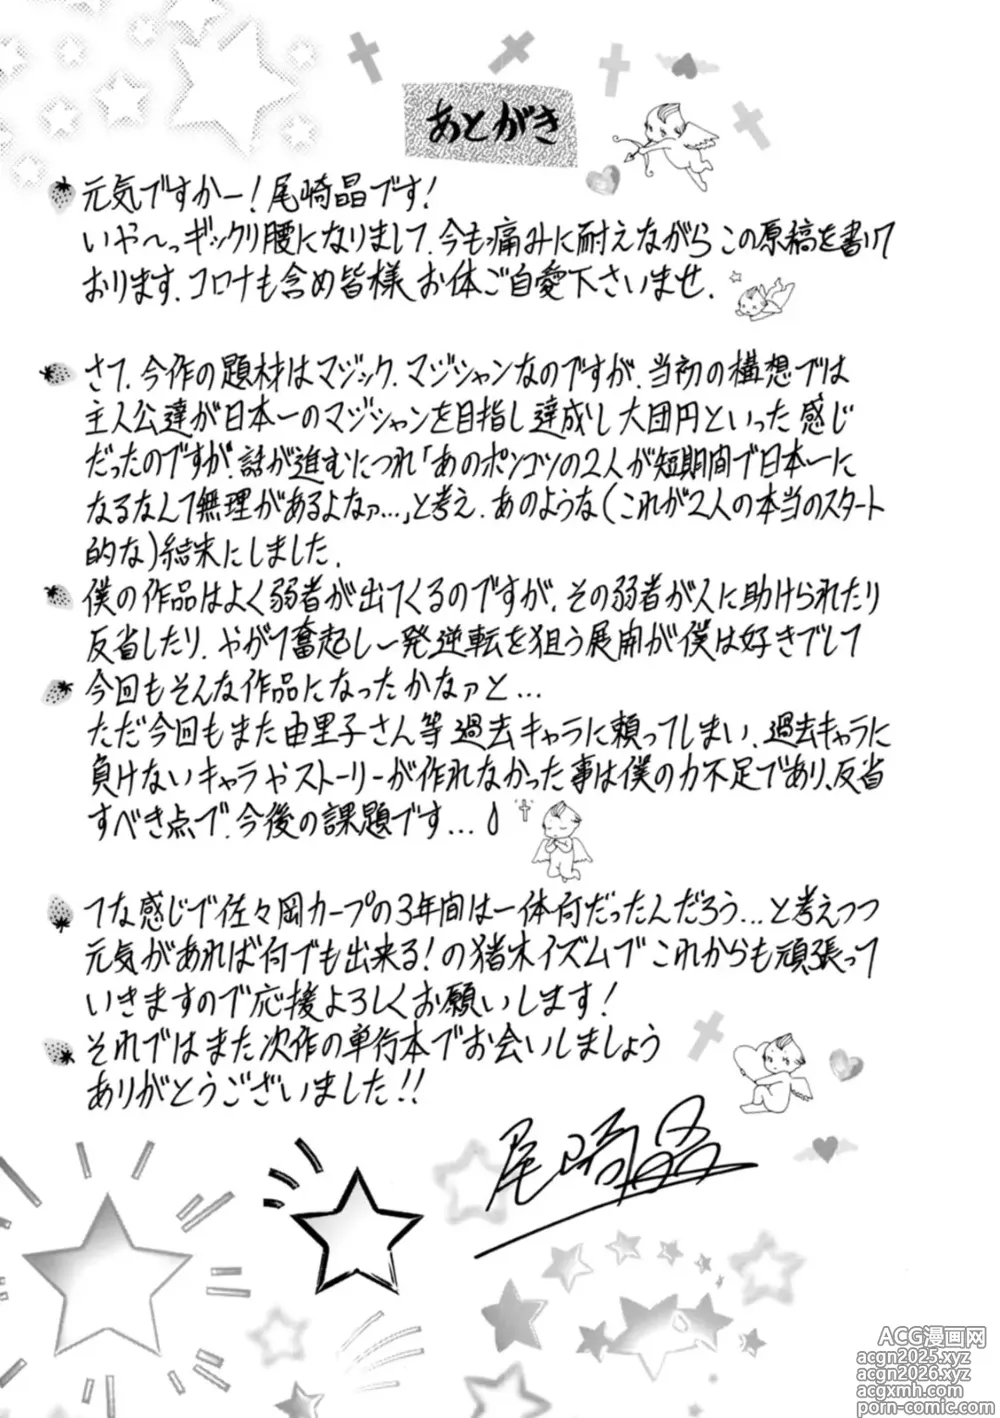 あとがき
元気ですかー!尾崎晶です!
いや〜っギックリ腰になりまして、今も痛みに耐えながらこの原稿を書いて
おります。コロナも含め皆様お体ご自愛下さいませ。
さて、今作の題材はマジック、マジシャンなのですが、当初の構想では
主人公達が日本一のマジシャンを目指し達成し大団円といった感じ
だったのですが、話が進むにつれ「あのポンコツの2人が短期間で日本一に
なるなんて無理があるよなァ…」と考え、あのような(これが2人の本当のスタート
的な)結末にしました。
僕の作品はよく弱者が出てくるのですが、その弱者が人に助けられたり
反省したり、やがて奮起し一発逆転を狙う展開が僕は好きでして
今回もそんな作品になったかなァと…
ただ今回もまた由里子さん等過去キャラに頼ってしまい、過去キャラに
負けないキャラやストーリーが作れなかった事は僕の力不足であり、反省
すべき点で、今後の課題です…
てな感じで佐々岡カープの3年間は一体何だったんだろう…と考えつつ
元気があれば何でも出来る!の猪木イズムでこれからも頑張って
いきますので応援よろしくお願いします!
それではまた次作の単行本でお会いしましょう
ありがとうございました!!
尾崎晶
ACG漫画网
acgn2025.xyz
acgn2026.xyz
acgxmh.com
porn-comic.com